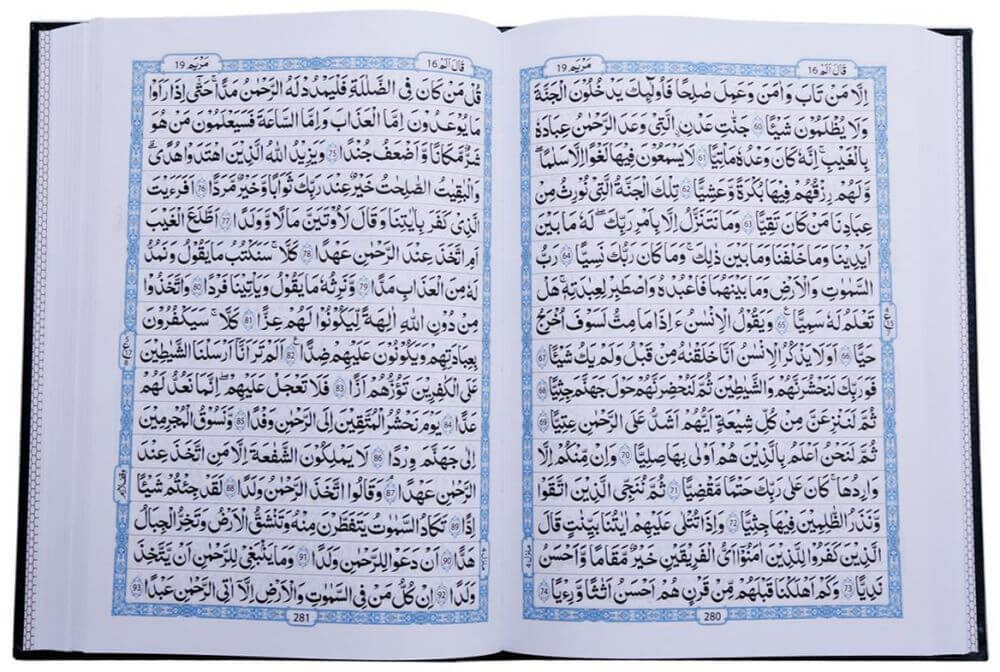 مَرْيَم 19
قَالَ اَلَمْ 16
اِلَّا مَنْ تَابَ وَ اٰمَنَ وَعَمِلَ صَالِحًا فَاُولٰٓئِكَ يَدْخُلُوْنَ الْجَنَّةَ
وَلَا يُظْلَمُوْنَ شَيْـًٔا 60 جَنّٰتِ عَدْنِ ِۨالَّتِىْ وَعَدَ الرَّحْمٰنُ عِبَادَهٗ
بِالْغَيْبِ ؕ اِنَّهٗ كَانَ وَعْدُهٗ مَاْتِيًّا 61 لَا يَسْمَعُوْنَ فِيْهَا لَغْوًا اِلَّا سَلٰمًا ؕ
وَلَهُمْ رِزْقُهُمْ فِيْهَا بُكْرَةً وَّعَشِيًّا 62 تِلْكَ الْجَنَّةُ الَّتِىْ نُوْرِثُ مِنْ
عِبَادِنَا مَنْ كَانَ تَقِيًّا 63 وَمَا نَتَنَزَّلُ اِلَّا بِاَمْرِ رَبِّكَ ۚ لَهٗ مَا بَيْنَ
اَيْدِيْنَا وَمَا خَلْفَنَا وَمَا بَيْنَ ذٰلِكَ ۚ وَمَا كَانَ رَبُّكَ نَسِيًّا 64 رَبُّ
السَّمٰوٰتِ وَالْاَرْضِ وَمَا بَيْنَهُمَا فَاعْبُدْهُ وَاصْطَبِرْ لِعِبَادَتِهٖ ؕ هَلْ
تَعْلَمُ لَهٗ سَمِيًّا 65 ع وَيَقُوْلُ الْاِنْسٰنُ ءَاِذَا مَا مِتُّ لَسَوْفَ اُخْرَجُ
حَيًّا 66 اَوَلَا يَذْكُرُ الْاِنْسٰنُ اَنَّا خَلَقْنٰهُ مِنْ قَبْلُ وَلَمْ يَكُ شَيْـًٔا 67
فَوَرَبِّكَ لَنَحْشُرَنَّهُمْ وَالشَّيٰطِيْنَ ثُمَّ لَنُحْضِرَنَّهُمْ حَوْلَ جَهَنَّمَ جِثِيًّا 68
ثُمَّ لَنَنْزِعَنَّ مِنْ كُلِّ شِيْعَةٍ اَيُّهُمْ اَشَدُّ عَلَى الرَّحْمٰنِ عِتِيًّا 69
ثُمَّ لَنَحْنُ اَعْلَمُ بِالَّذِيْنَ هُمْ اَوْلٰى بِهَا صِلِيًّا 70 وَاِنْ مِّنْكُمْ اِلَّا
وَارِدُهَا ۚ كَانَ عَلٰى رَبِّكَ حَتْمًا مَّقْضِيًّا 71 ثُمَّ نُنَجِّى الَّذِيْنَ اتَّقَوْا
وَّنَذَرُ الظّٰلِمِيْنَ فِيْهَا جِثِيًّا 72 وَاِذَا تُتْلٰى عَلَيْهِمْ اٰيٰتُنَا بَيِّنٰتٍ قَالَ
الَّذِيْنَ كَفَرُوْا لِلَّذِيْنَ اٰمَنُوْۤا اَىُّ الْفَرِيْقَيْنِ خَيْرٌ مَّقَامًا وَّاَحْسَنُ
نَدِيًّا 73 وَكَمْ اَهْلَكْنَا قَبْلَهُمْ مِّنْ قَرْنٍ هُمْ اَحْسَنُ اَثَاثًا وَّرِءْيًا 74
280
مَرْيَم 19
قَالَ اَلَمْ 16
قُلْ مَنْ كَانَ فِى الضَّلٰلَةِ فَلْيَمْدُدْ لَهُ الرَّحْمٰنُ مَدًّا ۚ حَتّٰٓى اِذَا رَاَوْا
مَا يُوْعَدُوْنَ اِمَّا الْعَذَابَ وَاِمَّا السَّاعَةَ فَسَيَعْلَمُوْنَ مَنْ هُوَ
شَرٌّ مَّكَانًا وَّاَضْعَفُ جُنْدًا 75 وَيَزِيْدُ اللّٰهُ الَّذِيْنَ اهْتَدَوْا هُدًى ؕ
وَالْبٰقِيٰتُ الصّٰلِحٰتُ خَيْرٌ عِنْدَ رَبِّكَ ثَوَابًا وَّخَيْرٌ مَّرَدًّا 76 اَفَرَءَيْتَ
الَّذِىْ كَفَرَ بِاٰيٰتِنَا وَقَالَ لَاُوْتَيَنَّ مَالًا وَّوَلَدًا 77 اَطَّلَعَ الْغَيْبَ
اَمِ اتَّخَذَ عِنْدَ الرَّحْمٰنِ عَهْدًا 78 كَلَّا ؕ سَنَكْتُبُ مَا يَقُوْلُ وَنَمُدُّ
لَهٗ مِنَ الْعَذَابِ مَدًّا 79 وَّنَرِثُهٗ مَا يَقُوْلُ وَيَاْتِيْنَا فَرْدًا 80 وَاتَّخَذُوْا
مِنْ دُوْنِ اللّٰهِ اٰلِهَةً لِّيَكُوْنُوْا لَهُمْ عِزًّا 81 كَلَّا ؕ سَيَكْفُرُوْنَ
بِعِبَادَتِهِمْ وَيَكُوْنُوْنَ عَلَيْهِمْ ضِدًّا 82 ع اَلَمْ تَرَ اَنَّاۤ اَرْسَلْنَا الشَّيٰطِيْنَ
عَلَى الْكٰفِرِيْنَ تَؤُزُّهُمْ اَزًّا 83 فَلَا تَعْجَلْ عَلَيْهِمْ ؕ اِنَّمَا نَعُدُّ لَهُمْ
عَدًّا 84 يَوْمَ نَحْشُرُ الْمُتَّقِيْنَ اِلَى الرَّحْمٰنِ وَفْدًا 85 وَّنَسُوْقُ الْمُجْرِمِيْنَ
اِلٰى جَهَنَّمَ وِرْدًا 86 لَا يَمْلِكُوْنَ الشَّفَاعَةَ اِلَّا مَنِ اتَّخَذَ عِنْدَ
الرَّحْمٰنِ عَهْدًا 87 وَقَالُوا اتَّخَذَ الرَّحْمٰنُ وَلَدًا 88 لَقَدْ جِئْتُمْ شَيْـًٔا
اِدًّا 89 تَكَادُ السَّمٰوٰتُ يَتَفَطَّرْنَ مِنْهُ وَتَنْشَقُّ الْاَرْضُ وَتَخِرُّ الْجِبَالُ
هَدًّا 90 اَنْ دَعَوْا لِلرَّحْمٰنِ وَلَدًا 91 وَمَا يَنْبَغِىْ لِلرَّحْمٰنِ اَنْ يَّتَّخِذَ
وَلَدًا 92 اِنْ كُلُّ مَنْ فِى السَّمٰوٰتِ وَالْاَرْضِ اِلَّاۤ اٰتِى الرَّحْمٰنِ عَبْدًا 93
281